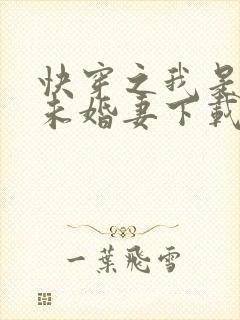 快穿之我是
未婚妻下載
一葉飛雪